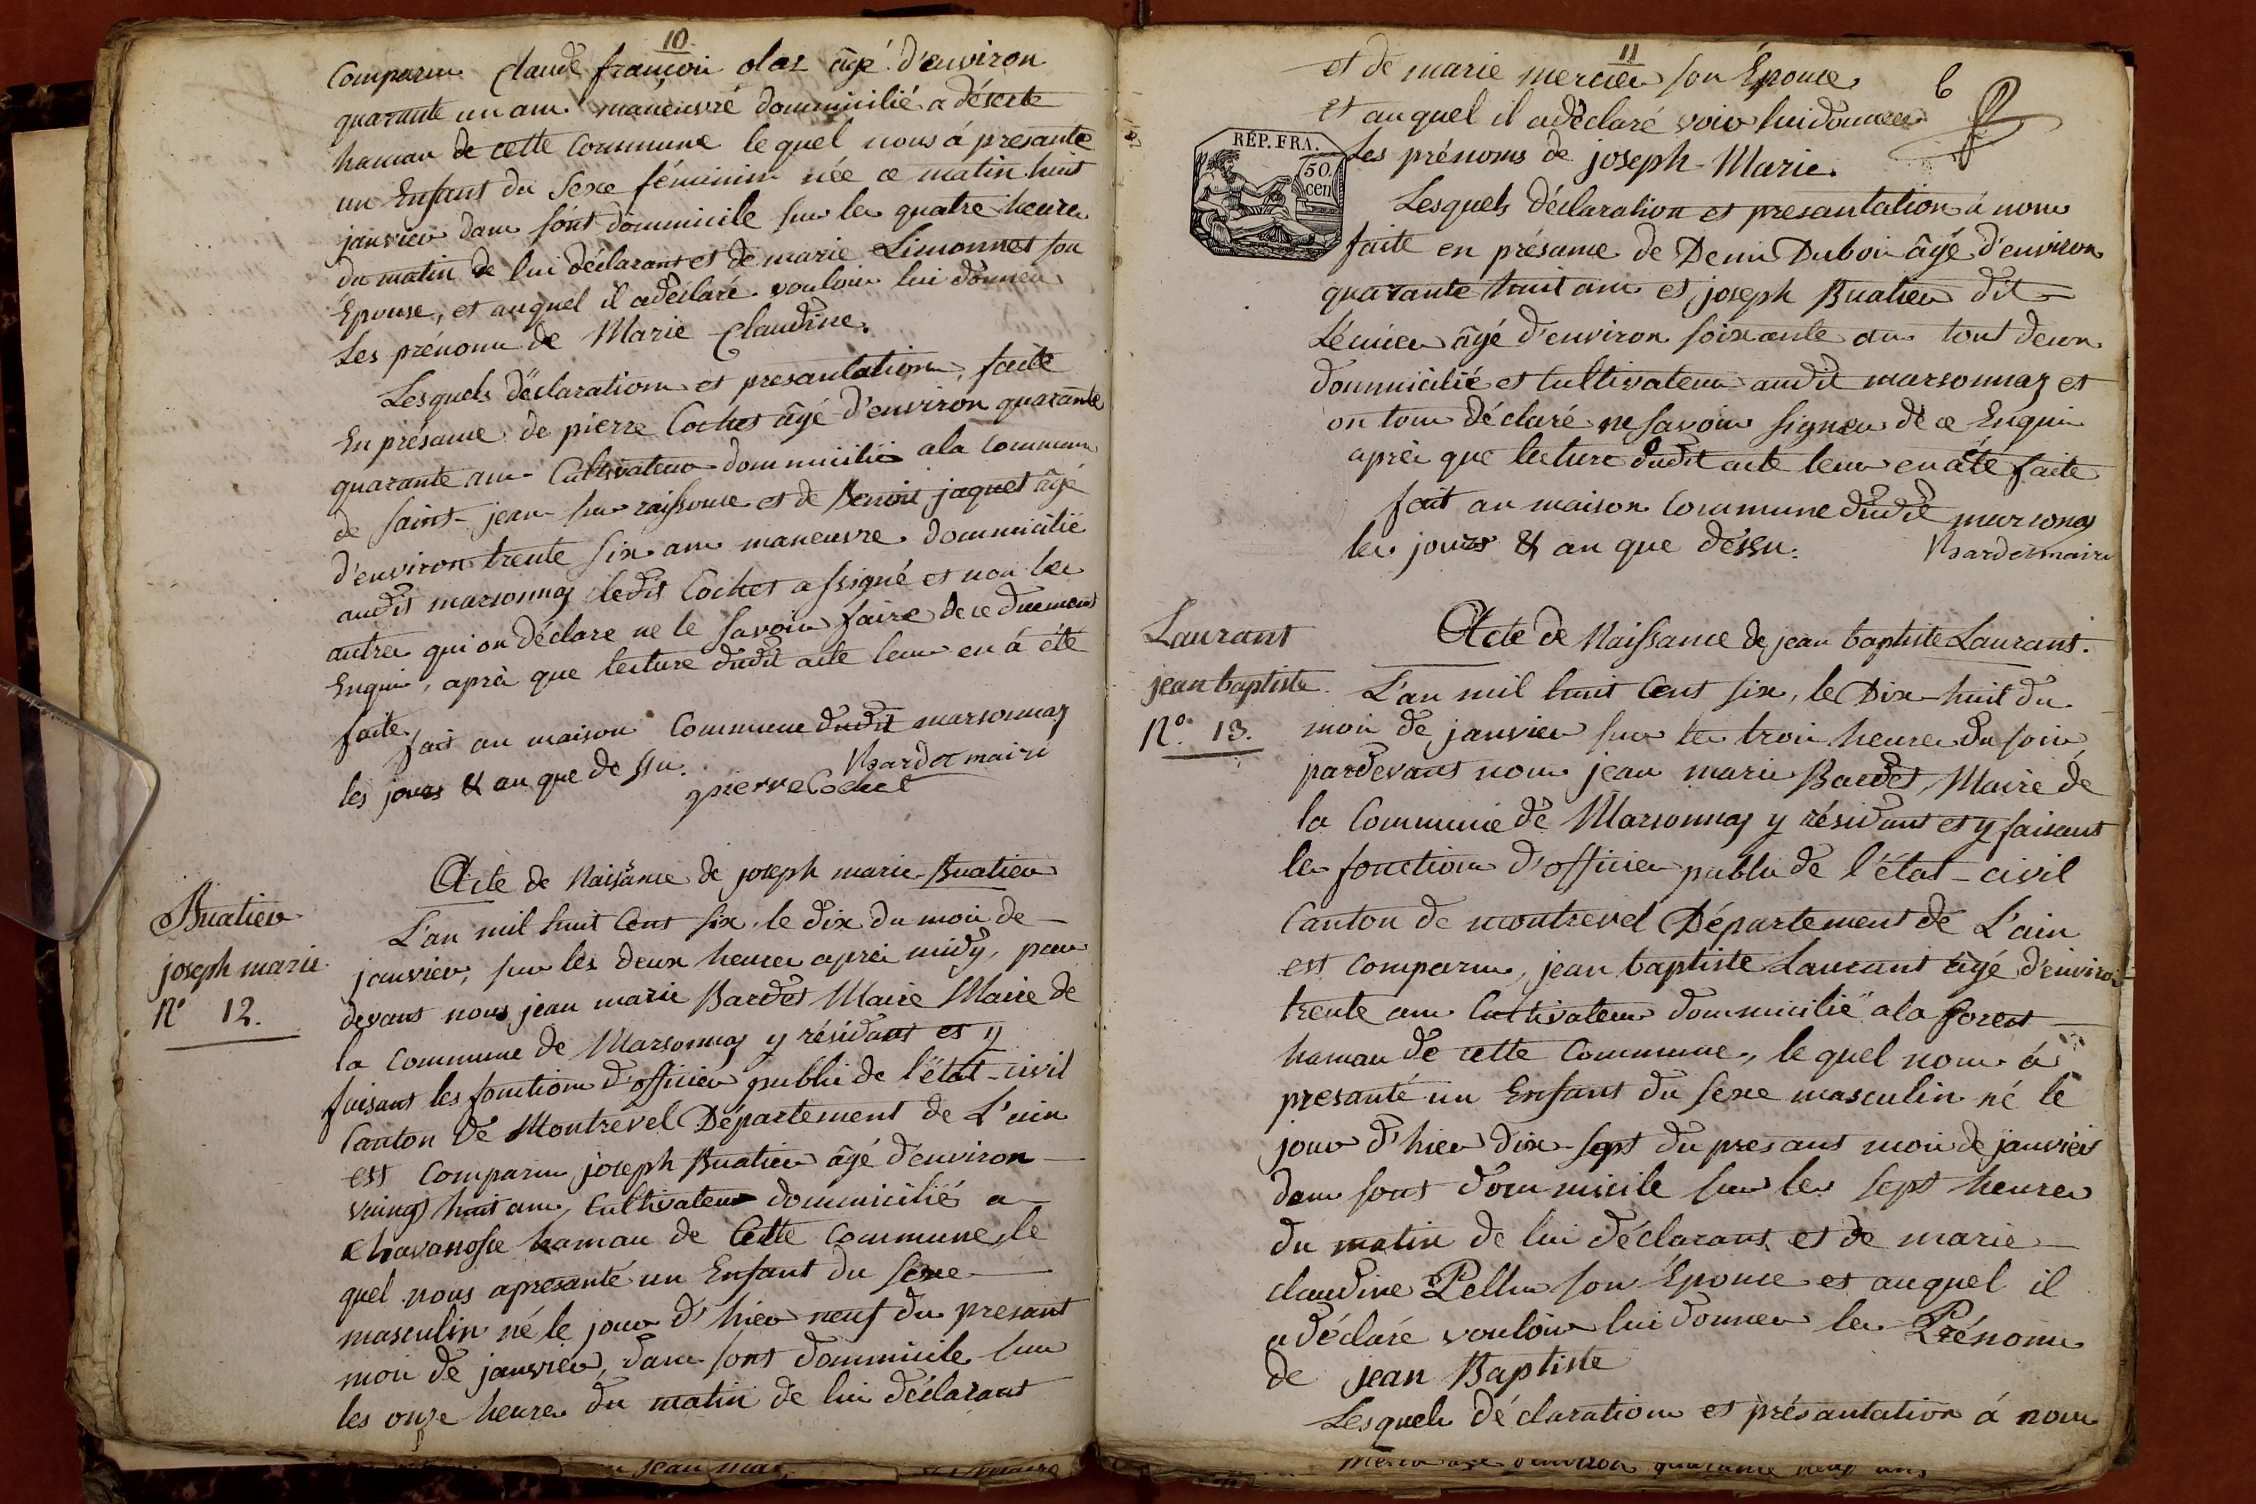 10
Comparu Claude françoi olaz âgé d'environ
quarante un ans maneuvré dommicilié a déserte
hamau de cette Commune le quel nous á presanté
un Enfant du Sexe féminin née ce matin huit
janvier dans sont dommicile sur les quatre heures
du matin de lui déclarant et de marie Limonnet son
Épouse, et auquel il a déclaré vouloir lui donner
Les prénoms de Marie Claudine.
Lesquels déclaration et presantation faite
En présance de pierre Cochet âgé d'environ quarante
quarante ans Cultivateur dommicilié a la Commune
de saint-jean sur raissouse et de Benoit jaquet âgé
d'environ trente six ans maneuvre dommicilié
audit marsonnas ledit Cochet a ssigné et non les
autres qui on déclare ne le savoir faire de ce duement
Enquis, après que lecture dudit acte leur en á été
faite.
fait au maison Commune dudit marsonnas
les jours & an que dessu.
Bardet maire
pierre Cochet
Acte de Naisance de joseph marie Buatier
Buatier
joseph marie
N° 12.
L'an mil huit Cent six, le dix du moi de
janvier, sur les deux heures après midy, par
devant nous jean marie Bardet Maire Maire de
la Commune de Marsonnas y résidant et y
faisant les fonctions d'officier public de l'état-civil
Canton de Montrevel Département de L'ain
est Comparu joseph Buatier âgé d'environ
vuingt huit ans, Cultivateur dommicilié a
Chavanosse hamau de Cette Commune, le
quel nous a presanté un Enfant du sexe
masculin né le jour d'hier neuf du presant
moi de janvier, dans sont dommicile sur
les onze heures du matin de lui déclarant
11
et de marie mercier son Épouse
6
et auquel il a déclaré voir lui donner
RÉP. FRA.
50.
cen
Les prénoms de joseph-Marie.
Lesquels déclaration et presantation á nous
faite en présance de Deni Duboi âgé d'environ
quarante huit ans et joseph Buatier dit
Lécuier âgé d'environ soixante ans tout deux
dommicilié et Cultivateur audit marsonnas et
on tous déclaré ne savoir signer de ce Enquis
après que lecture dudit acte leur en a été faite
fait au maison Commune dudit marsonas
les jours & an que dessu.
Bardet maire
Acte de Naissance de jean baptiste Laurant.
Laurant
jean baptiste.
N°. 13.
L'an mil huit Cent six, le Dix-huit du
moi de janvier sur les troi heures du soir
pardevant nous jean marie Bardet, Maire de
la Commune de Marsonnas y résidant et y faisant
les fonctions d'officier public de l'état-civil
Canton de montrevel Département de L'ain
est comparu, jean baptiste Laurant âgé d'environ
trente ans Cultivateur dommicilié a la forest
hamau de cette Commune, le quel nous á
presanté un Enfant du sexe masculin né le
jour d'hier dix-sept du presant moi de janvier
dans sont dommicile sur les sept heures
du matin de lui déclarant et de marie
claudine Pellu son Épouse et auquel il
a déclaré vouloir lui donner les Prénoms
de jean Baptiste
Lesquels déclaration et présantation á nous